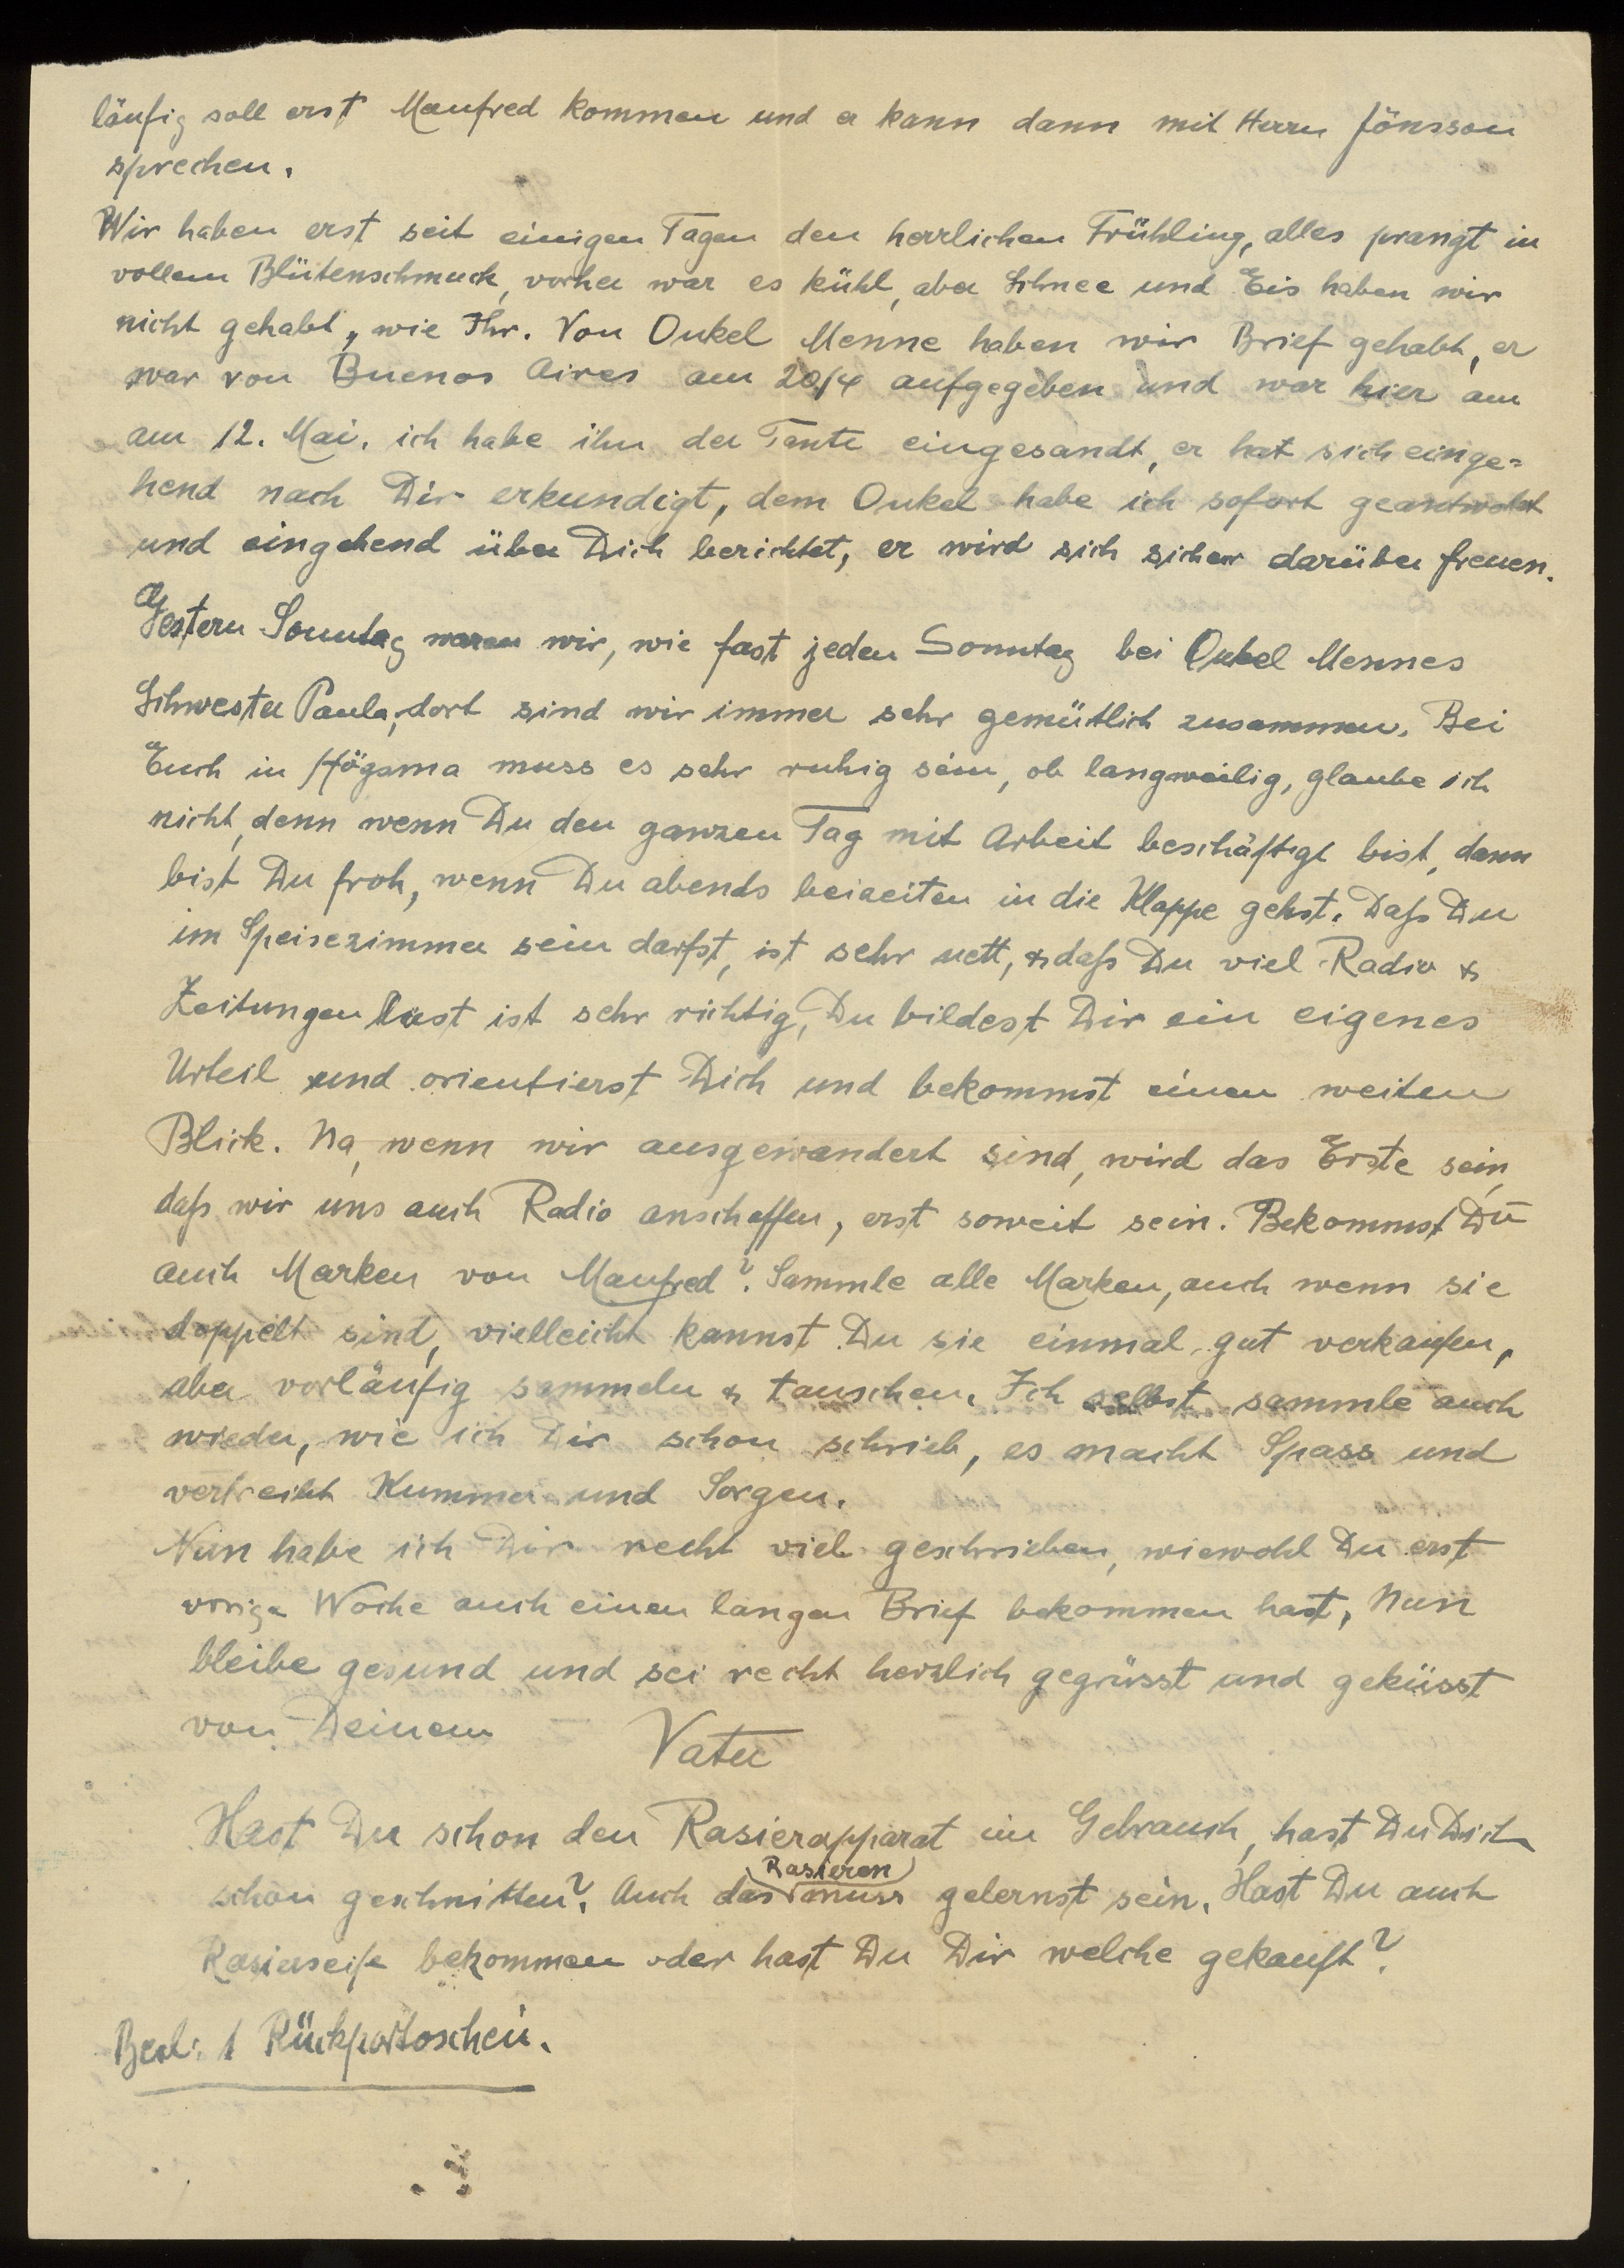 läufig soll erst Manfred kommen und er kann dann mit Herrn Jönsson
sprechen.
Wir haben erst seit einigen Tagen den herrlichen Frühling, alles prangt in
vollem Blütenschmuck, vorher war es kühl, aber Schnee und Eis haben wir
nicht gehabt, wie Ihr. Von Onkel Menne haben wir Brief gehabt, er
war von Buenos Aires am 20/4 aufgegeben und war hier am
am 12. Mai. ich habe ihn der Tante eingesandt, er hat sich einge=
hend nach Dir erkundigt, dem Onkel habe ich sofort geantwortet
und eingehend über Dich berichtet, er wird sich sicher darüber freuen.
Gestern Sonntag waren wir, wie fast jeden Sonntag bei Onkel Mennes
Schwester Paula, dort sind wir immer sehr gemütlich zusammen. Bei
Euch in Högsma muss es sehr ruhig sein, ob langweilig, glaube ich
nicht, denn wenn Du den ganzen Tag mit Arbeit beschäftigt bist, dann
bist Du froh, wenn Du abends beizeiten in die Klappe gehst. Daß Du
im Speisezimmer sein darfst, ist sehr nett, & daß Du viel Radio &
Zeitungen liest ist sehr richtig, Du bildest Dir ein eigenes
Urteil und orientierst Dich und bekommst einen weiten
Blick. Na, wenn wir ausgewandert sind, wird das Erste sein,
daß wir uns auch Radio anschaffen, erst soweit sein. Bekommst Du
auch Marken von Manfred? Sammle alle Marken, auch wenn sie
doppelt sind, vielleicht kannst Du sie einmal gut verkaufen,
aber vorläufig sammeln & tauschen. Ich selbst sammle auch
wieder, wie ich Dir schon schrieb, es macht Spass und
vertreibt Kummer und Sorgen.
Nun habe ich Dir recht viel geschrieben, wiewohl Du erst
vorige Woche auch einen langen Brief bekommen hast, Nun
bleibe gesund und sei recht herzlich gegrüsst und geküsst
von Deinem Vater
Hast Du schon den Rasierapparat im Gebrauch, hast Du Dich
schon geschnitten? Auch das Rasieren muss gelernst sein. Hast Du auch
Rasierseife bekommen oder hast Du Dir welche gekauft?
Beil: 1 Rückportoschein.